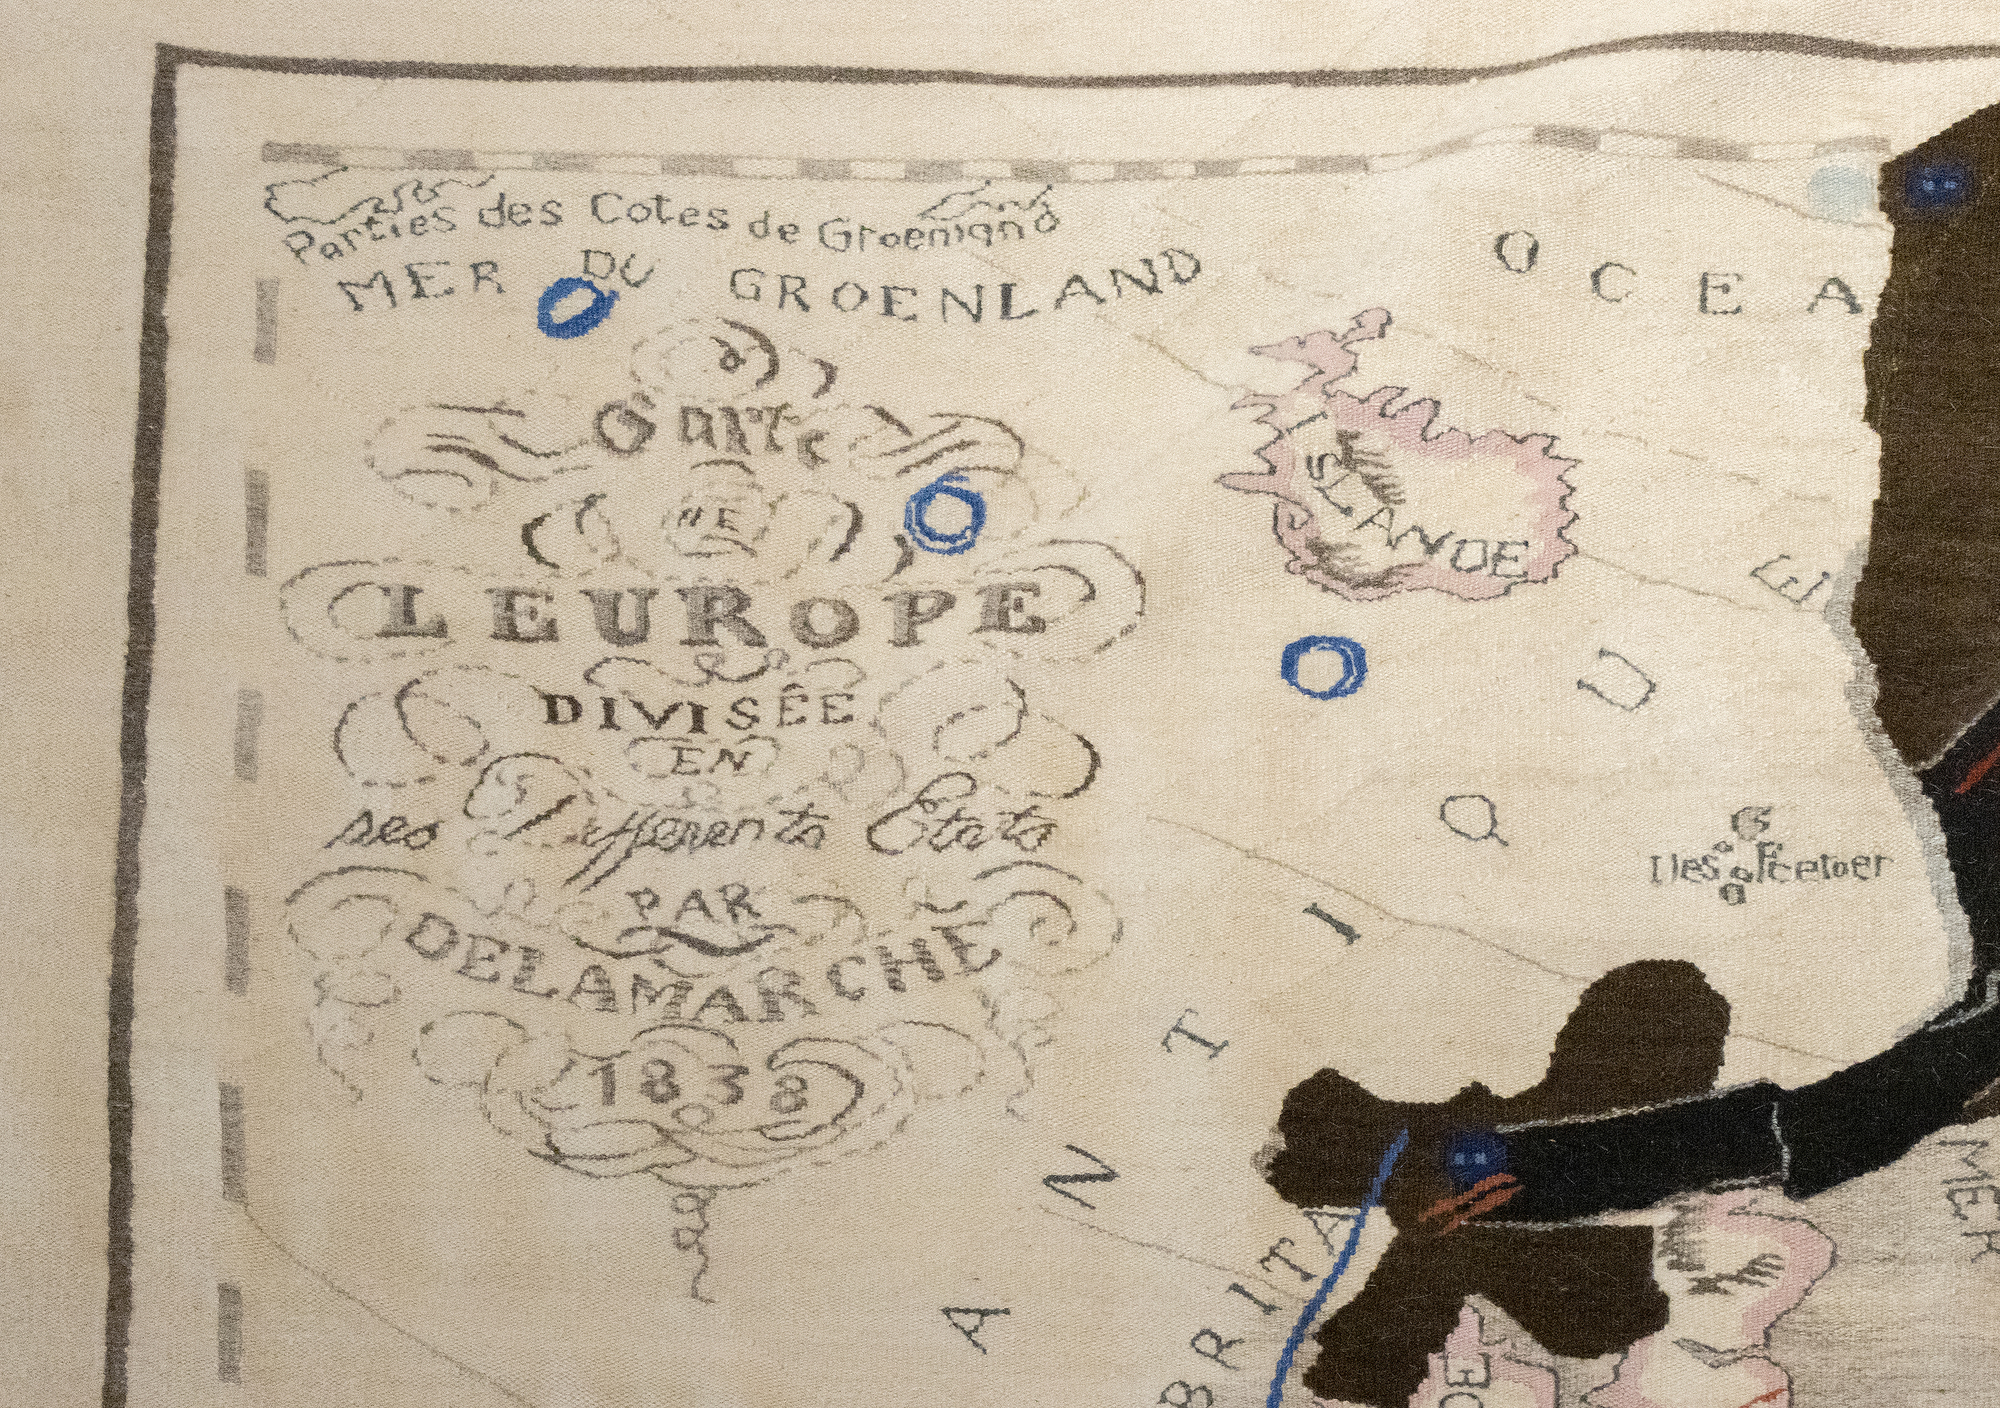 Parties des Cotes de Groenland
MER DU GROENLAND
Carte
DE
LEUROPE
DIVISÊE
EN
ses Differents Etats
PAR
DELAMARCHE
1838
OCEA
ISLANDE
ANTIQUE
Iles Feroer
BRITA
MER